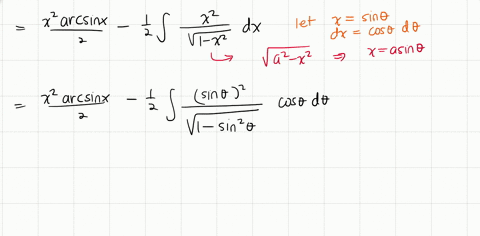 = x² arcsinx / 2 − 1/2 ∫ x² / √(1-x²) dx
let x = sinθ
dx = cosθ dθ
√(a²-x²) ⇒ x = asinθ
= x² arcsinx / 2 − 1/2 ∫ (sinθ)² / √(1 - sin²θ) cosθ dθ